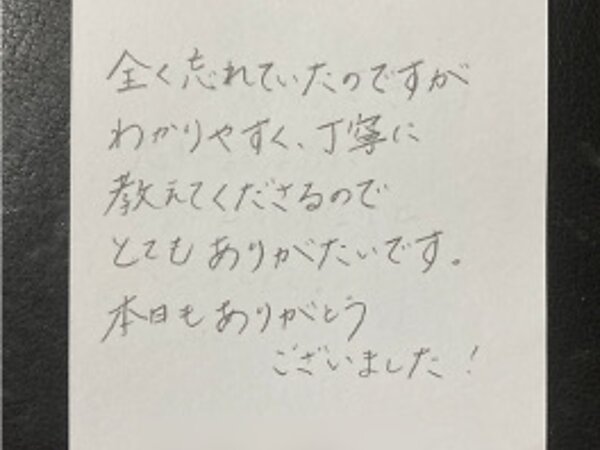 全く忘れていたのですが
わかりやすく、丁寧に
教えてくださるので
とてもありがたいです。
本日もありがとう
ございました！